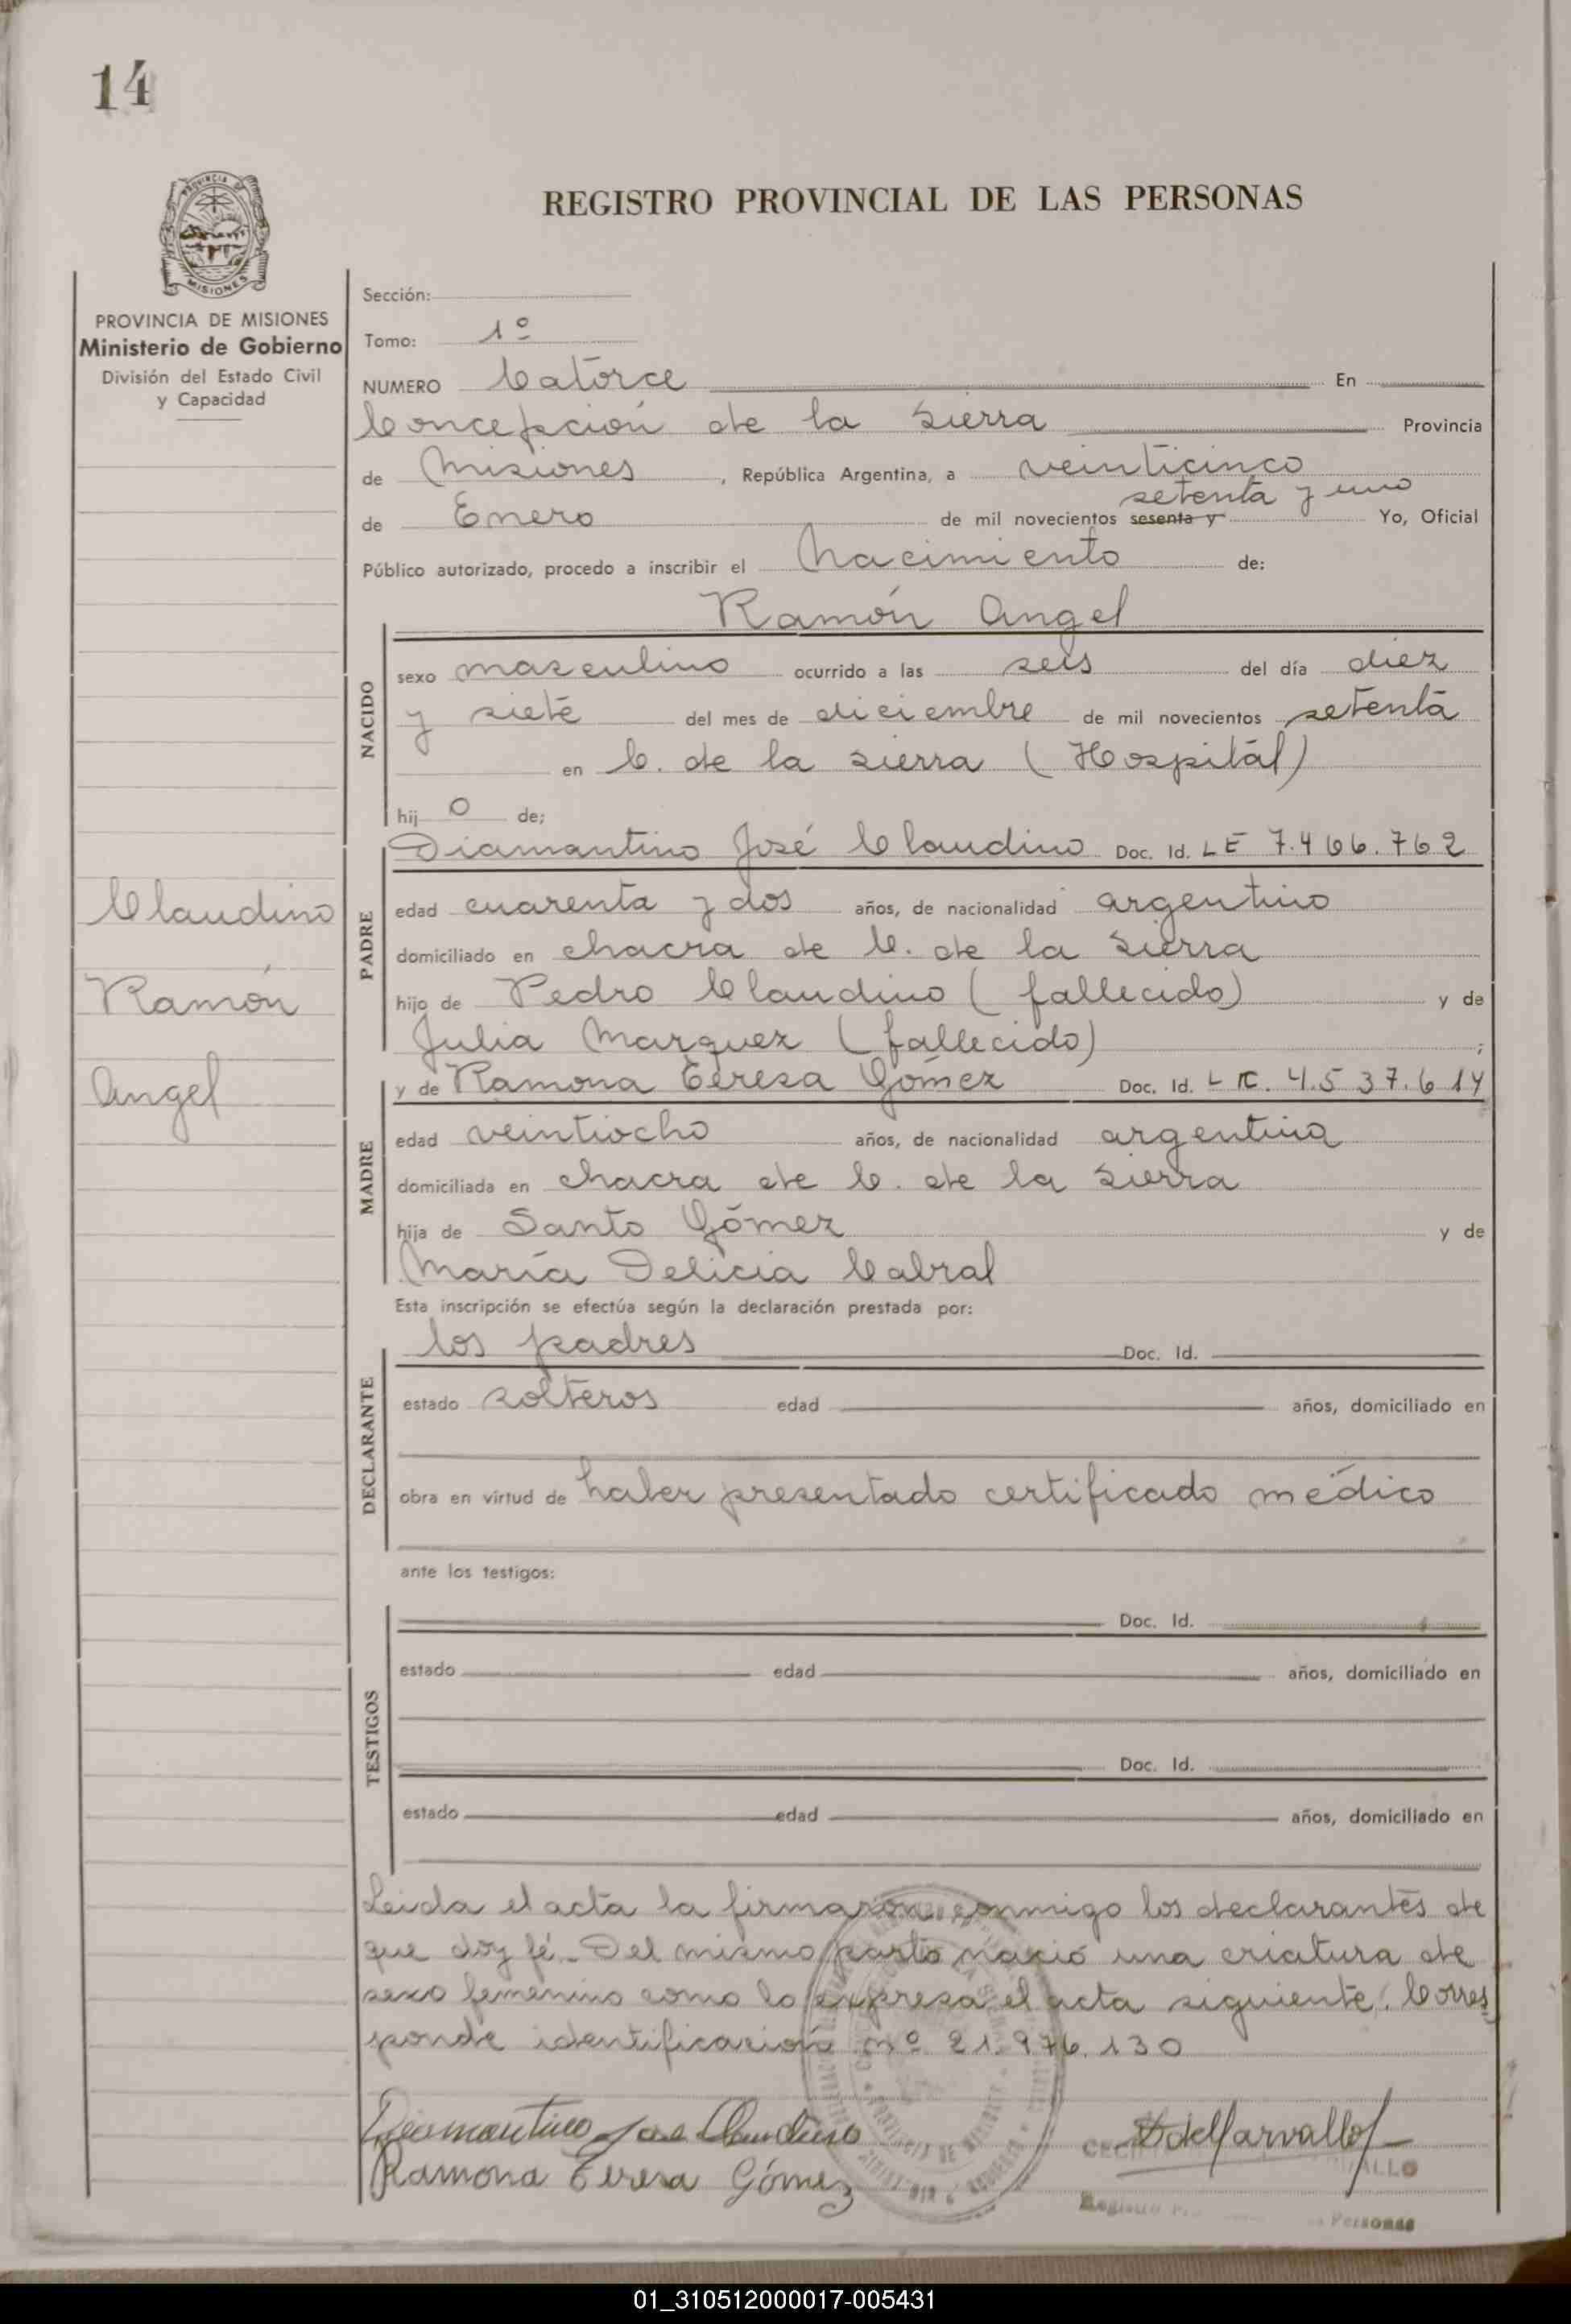 14
PROVINCIA DE
MISIONES
REGISTRO PROVINCIAL DE LAS PERSONAS
PROVINCIA DE MISIONES
Ministerio de Gobierno
División del Estado Civil
y Capacidad
Claudino
Ramón
Angel
Sección:
Tomo: 1º
NUMERO Catorce En
Concepción de la Sierra Provincia
de Misiones, República Argentina, a veinticinco
setenta y uno
de Enero de mil novecientos sesenta y Yo, Oficial
Público autorizado, procedo a inscribir el Nacimiento de:
Ramón Angel
NACIDO
sexo masculino ocurrido a las seis del día diez
y siete del mes de diciembre de mil novecientos setenta
en C. de la Sierra (Hospital)
hij o de;
PADRE
Diamantino José Claudino Doc. Id. LE 7.466.762
edad cuarenta y dos años, de nacionalidad argentino
domiciliado en chacra de C. de la Sierra
hijo de Pedro Claudino (fallecido) y de
Julia Marquez (fallecido) ;
MADRE
y de Ramona Teresa Gómez Doc. Id. LC. 4.537.614
edad veintiocho años, de nacionalidad argentina
domiciliada en chacra de C. de la Sierra
hija de Santo Gómez y de
María Delicia Cabral
Esta inscripción se efectúa según la declaración prestada por:
DECLARANTE
los padres Doc. Id.
estado solteros edad años, domiciliado en
obra en virtud de haber presentado certificado médico
ante los testigos:
TESTIGOS
Doc. Id.
estado edad años, domiciliado en
Doc. Id.
estado edad años, domiciliado en
Leida el acta la firmaron conmigo los declarantes de
que doy fé.- Del mismo parto nació una criatura de
sexo femenino como lo expresa el acta siguiente. Corres
ponde identificación nº 21.976.130
Diamantino Jose Claudino
Ramona Teresa Gómez
Registro
Personas
01_310512000017-005431